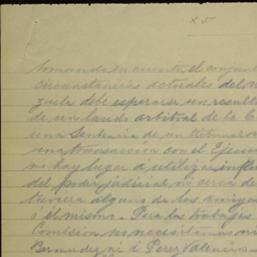 x 5
tomando en cuenta el conjunt
circunstancias actuales del
zuela debe esperarse un result
de un laudo arbitral de la C
una Sentencia de un tribunal
una transacción con el Ejecu
no hay lugar a utilizar influ
del poder judicial, ni cerca de
tuviera alguno de los amigos
ó él mismo. Para los trabajos
Comisión no necesitamos ni
Bermudez ni á Perez Valencino